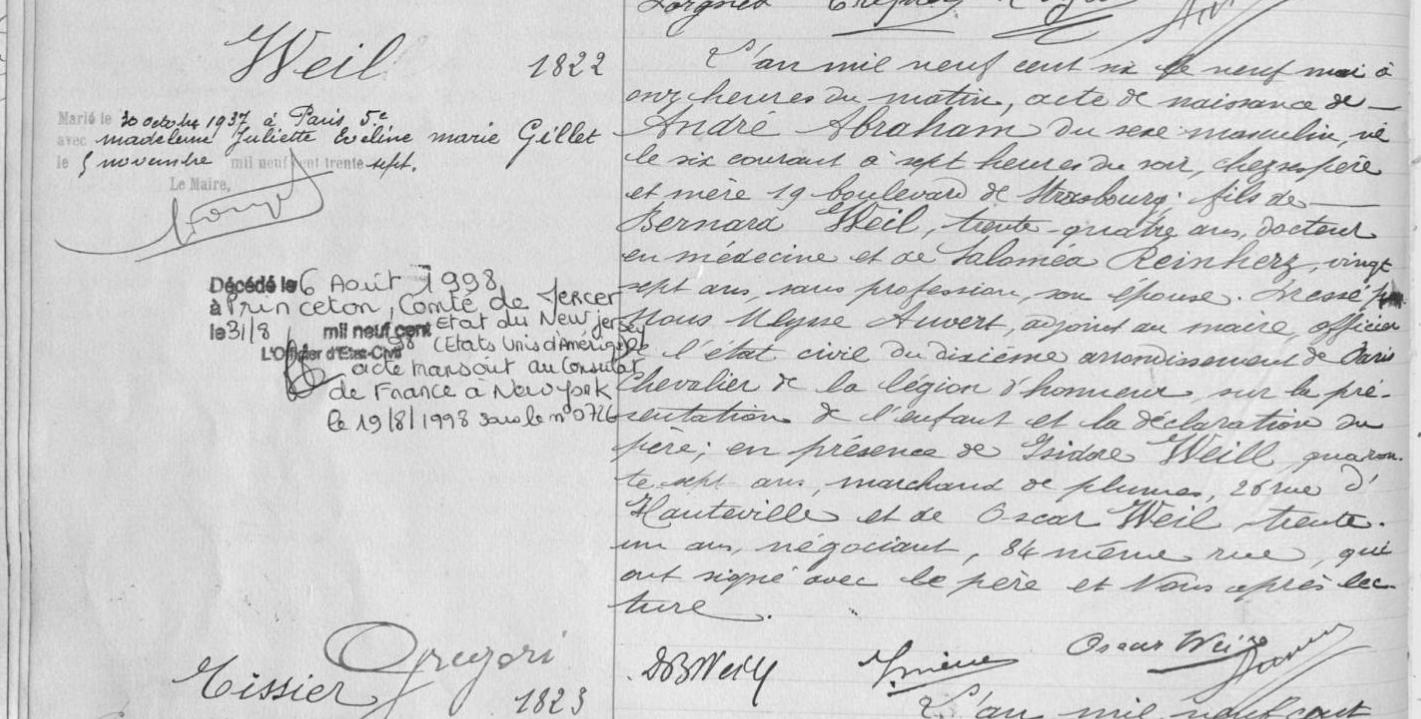 Weil
1822
Marié le 30 octobre 1937 à Paris 5e
avec madeleine Juliette Eveline marie Gillet
le 5 novembre mil neuf cent trente sept.
Le Maire,
Décédé le 6 Août 1998
à Princeton, Comté de Mercer
Etat du New Jersey
le 31/8 mil neuf cent 98
(Etats Unis d'Amérique)
L'Officier d'Etat-Civil
acte transcrit au Consulat
de France à New York
le 19/8/1998 sous le n° 0726
L'an mil neuf cent six le neuf mai à
onze heures du matin, acte de naissance de
André Abraham du sexe masculin, né
le six courant à sept heures du soir, chez ses père
et mère 19 boulevard de Strasbourg; fils de
Bernard Weil, trente-quatre ans, docteur
en médecine et de Saloméa Reinherz, vingt
sept ans, sans profession, son épouse. Dressé par
Nous Ulysse Auvert, adjoint au maire, officier
de l'état civil du dixième arrondissement de Paris
Chevalier de la légion d'honneur, sur la pré-
sentation de l'enfant et la déclaration du
père; en présence de Isidore Weill, quaran-
te sept ans, marchand de plumes, 26 rue d'
Hauteville et de Oscar Weil, trente-
un ans, négociant, 84 même rue, qui
ont signé avec le père et Nous après lec-
ture.
DBWeill
Oscar Weil
Gregori
Tissier
1823
L'an mil neuf cent